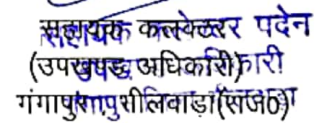 सहायक कलेक्टर पदेन
(उपखण्ड अधिकारी)
गंगापुर, भीलवाड़ा (राज0)